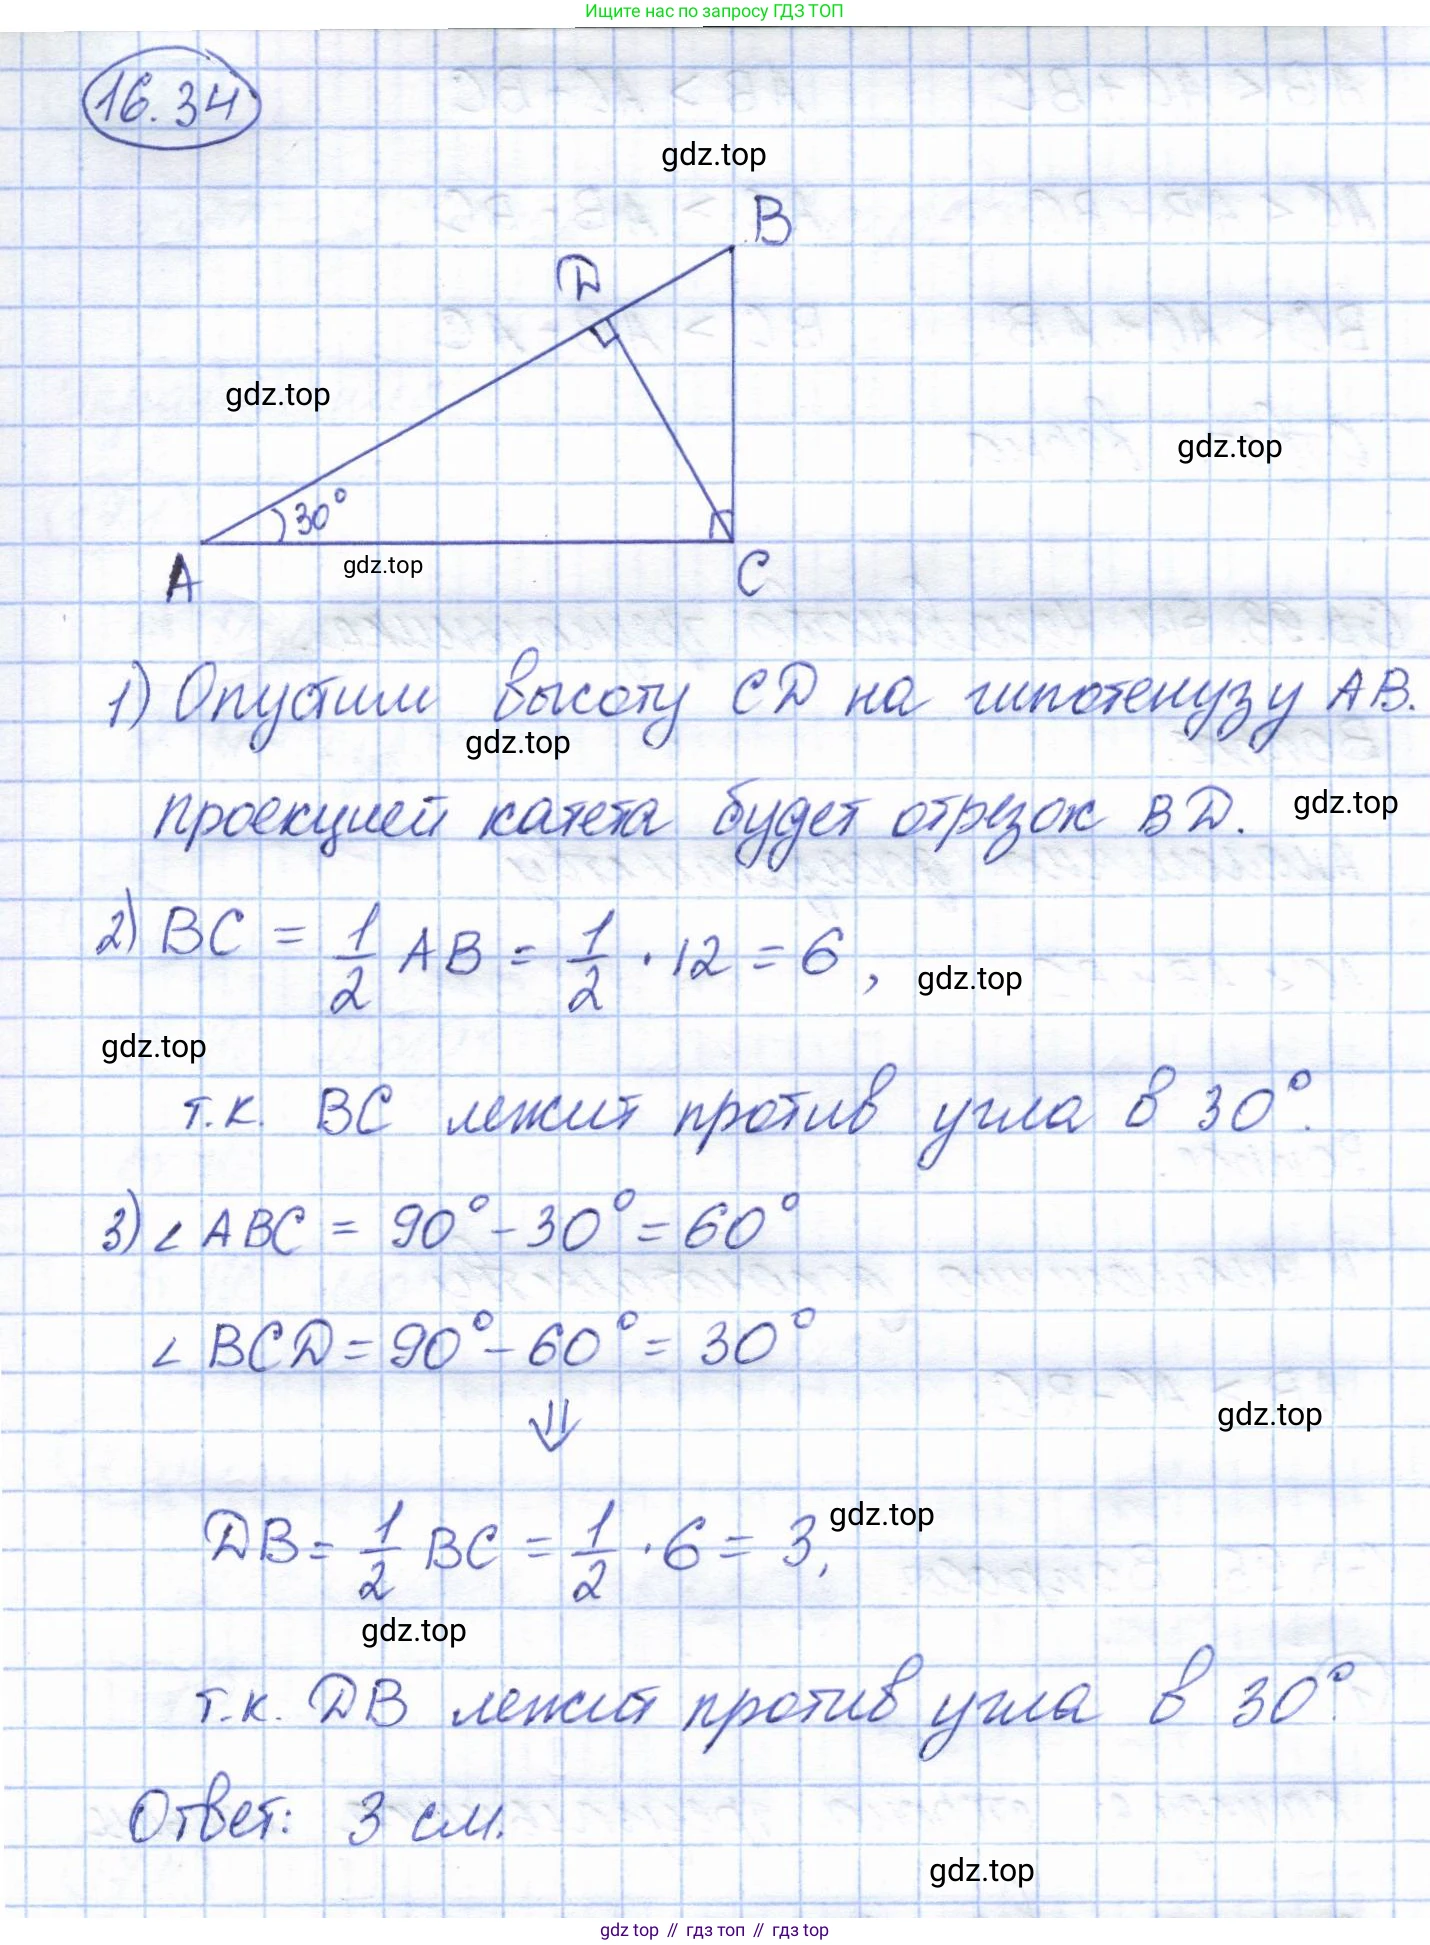 Ищите нас по запросу ГДЗ ТОП
16.34
gdz.top
B
D
gdz.top
gdz.top
30°
A
gdz.top
C
1) Опустим высоту CD на гипотенузу AB.
gdz.top
проекцией катета будет отрезок BD.
gdz.top
2) BC = 1/2 AB = 1/2 · 12 = 6,
gdz.top
gdz.top
т.к. BC лежит против угла в 30°.
3) ∠ABC = 90° - 30° = 60°
∠BCD = 90° - 60° = 30°
⇓
gdz.top
DB = 1/2 BC = 1/2 · 6 = 3,
gdz.top
gdz.top
т.к. DB лежит против угла в 30°.
Ответ: 3 см.
gdz.top
gdz top // гдз топ // гдз top